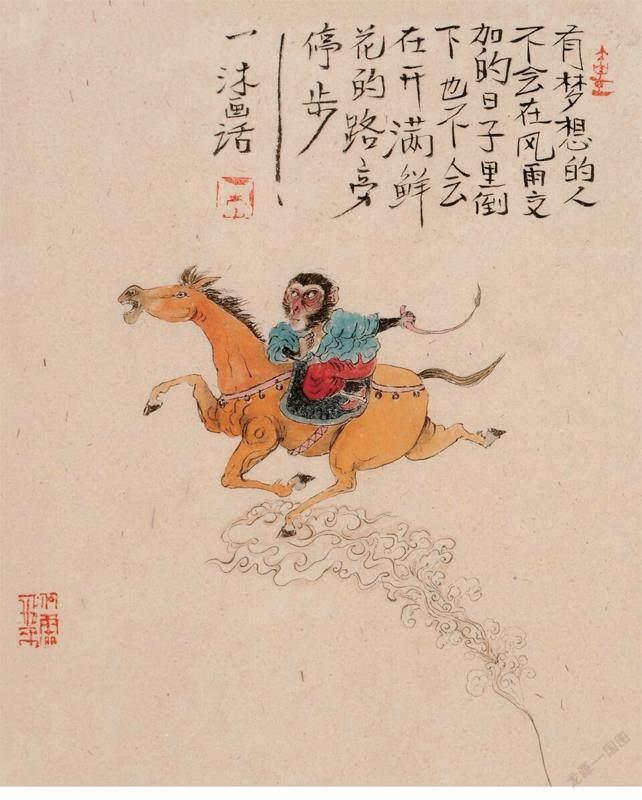 有梦想的人
不会在风雨交
加的日子里倒
下也不会
在开满鲜
花的路旁
停步
一沐画话